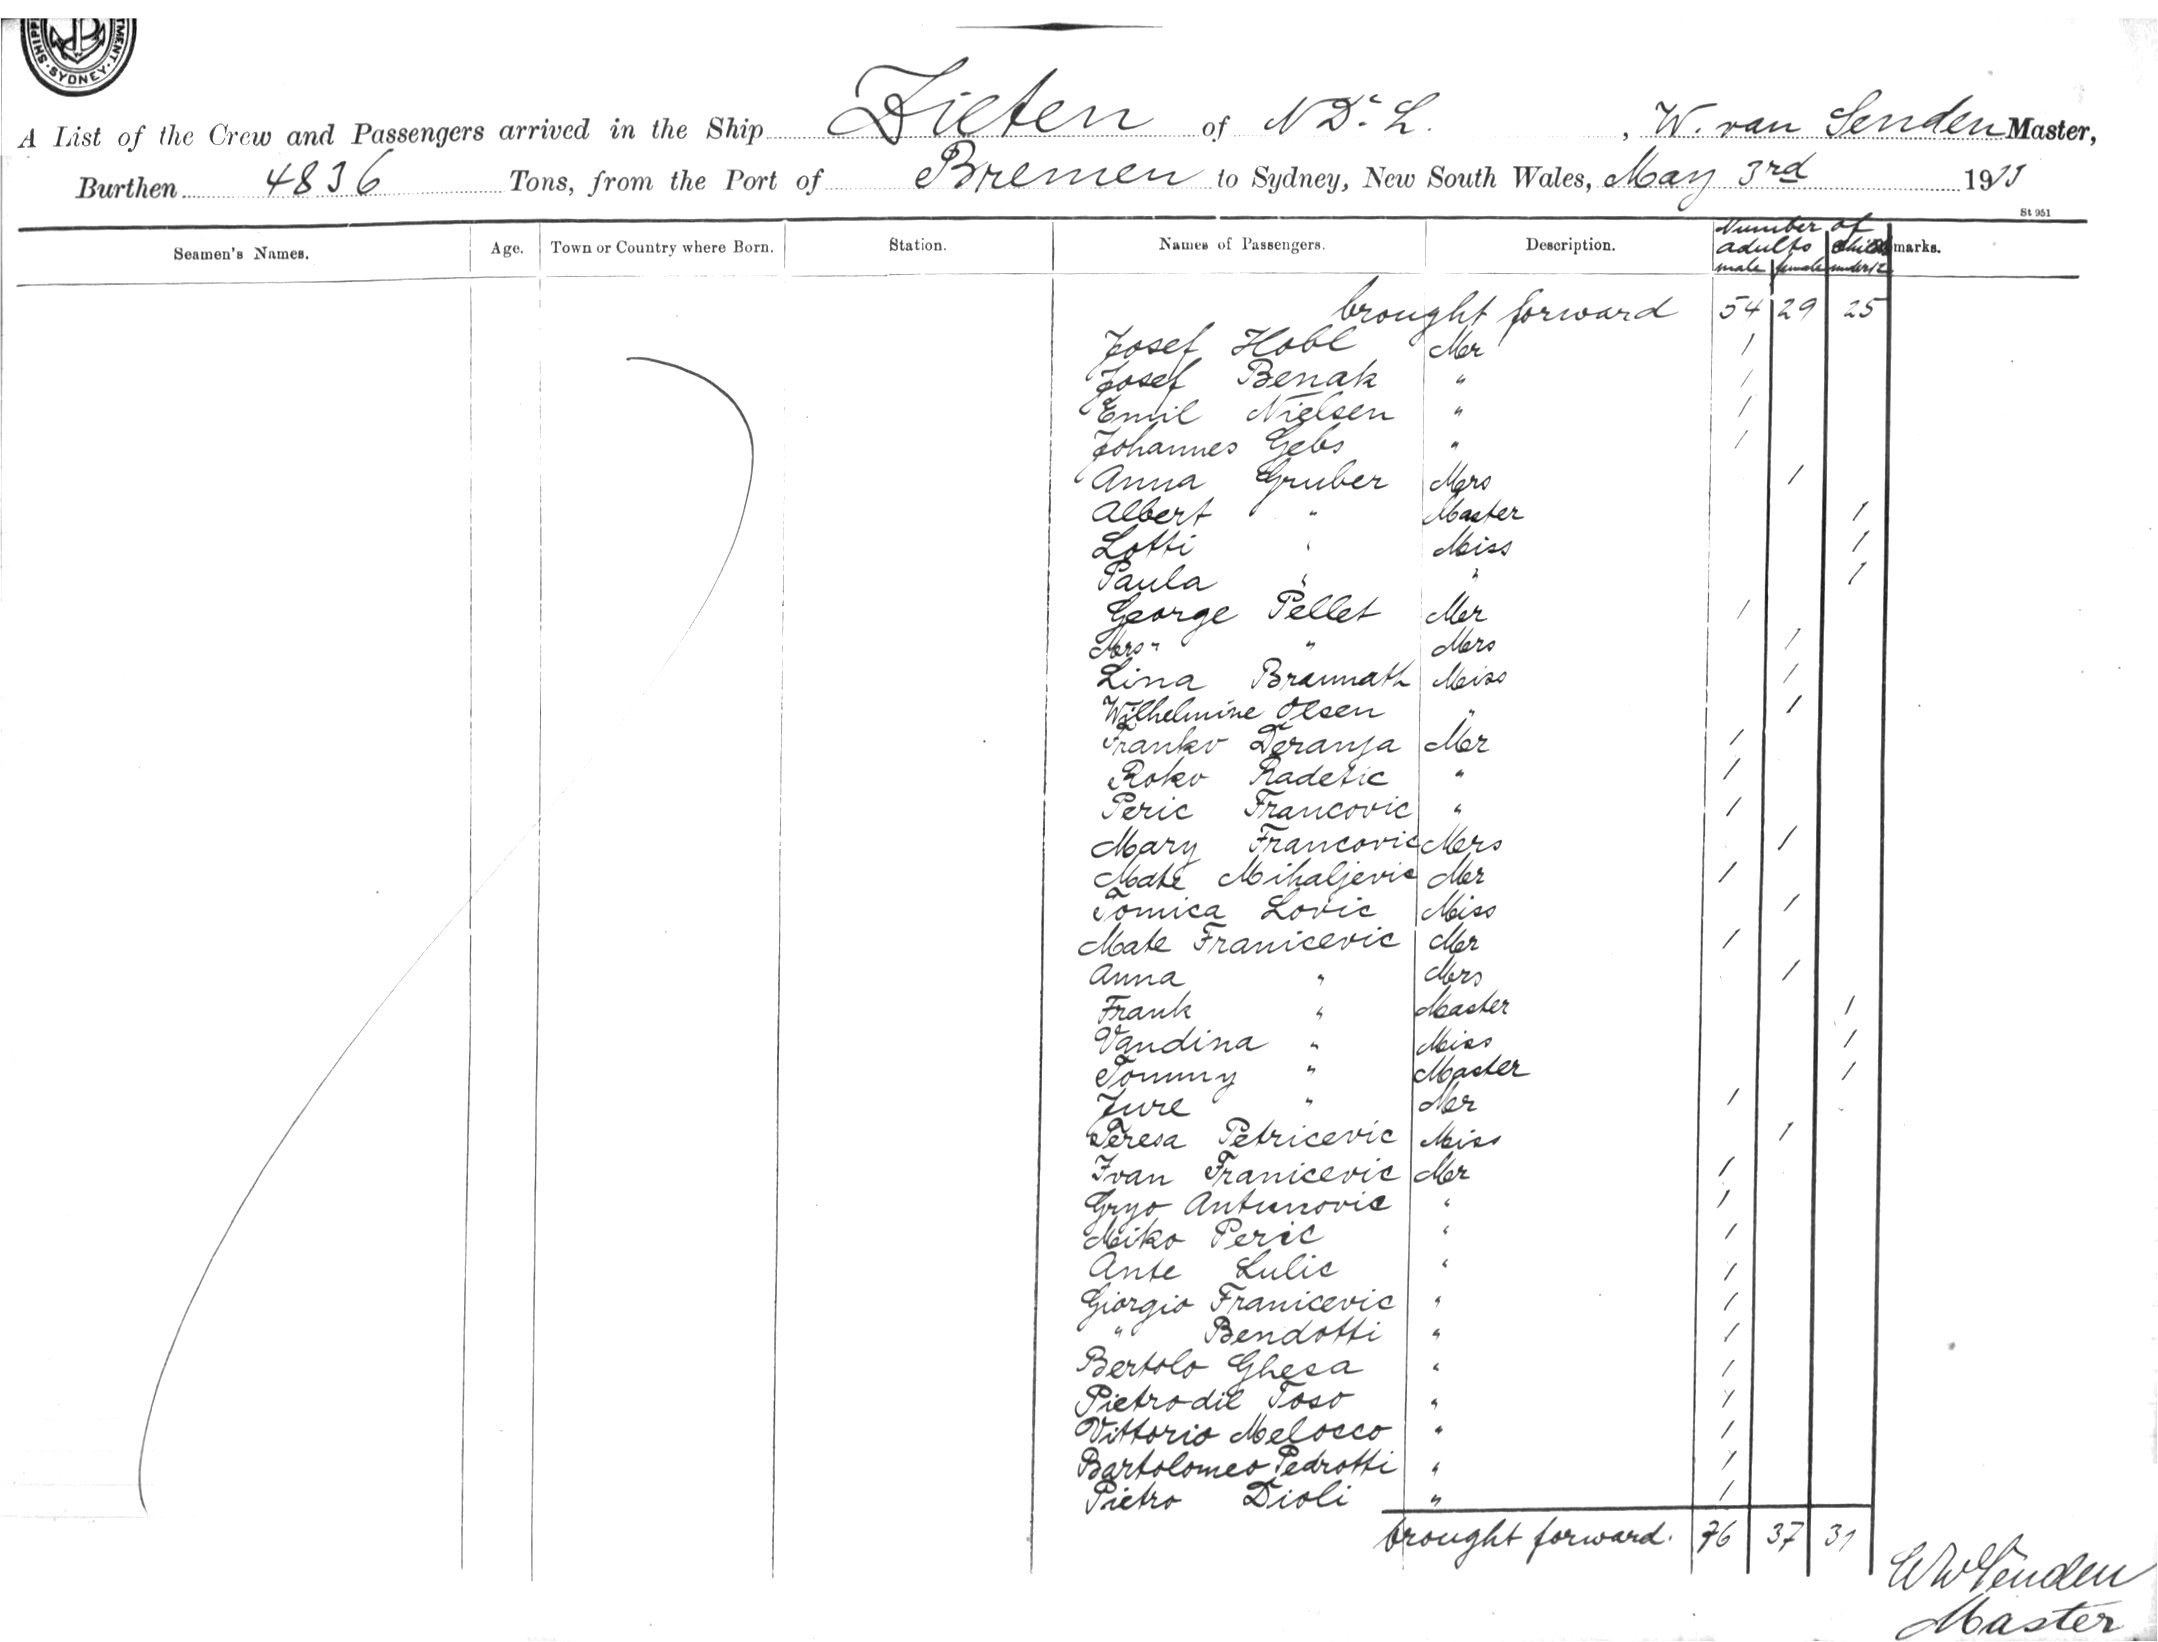 SHIPPING SYDNEY
A List of the Crew and Passengers arrived in the Ship Zieten of N D. L. , W. van Senden Master,
Burthen 4836 Tons, from the Port of Bremen to Sydney, New South Wales, May 3rd 19
St 951
Seamen's Names. Age. Town or Country where Born. Station. Names of Passengers. Description. Number of adults male female under 12 marks.
brought forward 54 29 25
Josef Hobl Mr 1
Josef Benak " 1
Emil Nielsen " 1
Johannes Gebs " 1
Anna Gruber Mrs 1
Albert " Master 1
Lotti " Miss 1
Paula " " 1
George Pellet Mr 1
Mrs " " Mrs 1
Lina Braunath Miss 1
Wilhelmine Olsen " 1
Franko Zeranja Mr 1
Roko Radetic " 1
Peric Francovic " 1
Mary Francovic Mrs 1
Mate Mihaljevic Mr 1
Tomica Lovic Miss 1
Mate Franicevic Mr 1
Anna " Mrs 1
Frank " Master 1
Vandina " Miss 1
Tommy " Master 1
Jure " Mr 1
Teresa Petricevic Miss 1
Ivan Franicevic Mr 1
Gryo Antunovic " 1
Miko Peric " 1
Ante Lulic " 1
Giorgio Franicevic " 1
" Bendotti " 1
Bertolo Ghesa " 1
Pietro dil Toso " 1
Vittorio Melocco " 1
Bartolomeo Pedrotti " 1
Pietro Dioli " 1
brought forward. 76 37 31
W v Senden
Master